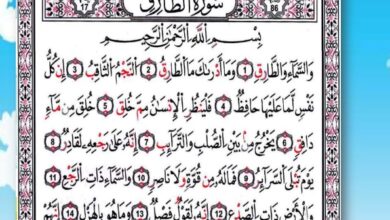 سُورَةُ الطَّارِقِ
بِسْمِ اللَّهِ الرَّحْمَٰنِ الرَّحِيمِ
وَالسَّمَاءِ وَالطَّارِقِ 1 وَمَا أَدْرَىٰكَ مَا الطَّارِقُ 2 النَّجْمُ الثَّاقِبُ 3 إِن كُلُّ
نَفْسٍ لَّمَّا عَلَيْهَا حَافِظٌ 4 فَلْيَنظُرِ الْإِنسَٰنُ مِمَّ خُلِقَ 5 خُلِقَ مِن مَّاءٍ
دَافِقٍ 6 يَخْرُجُ مِن بَيْنِ الصُّلْبِ وَالتَّرَائِبِ 7 إِنَّهُ عَلَىٰ رَجْعِهِ لَقَادِرٌ 8
يَوْمَ تُبْلَى السَّرَائِرُ 9 فَمَا لَهُ مِن قُوَّةٍ وَلَا نَاصِرٍ 10 وَالسَّمَاءِ ذَاتِ الرَّجْعِ 11
وَالْأَرْضِ ذَاتِ الصَّدْعِ 12 إِنَّهُ لَقَوْلٌ فَصْلٌ 13 وَمَا هُوَ بِالْهَزْلِ 14 إِنَّهُمْ